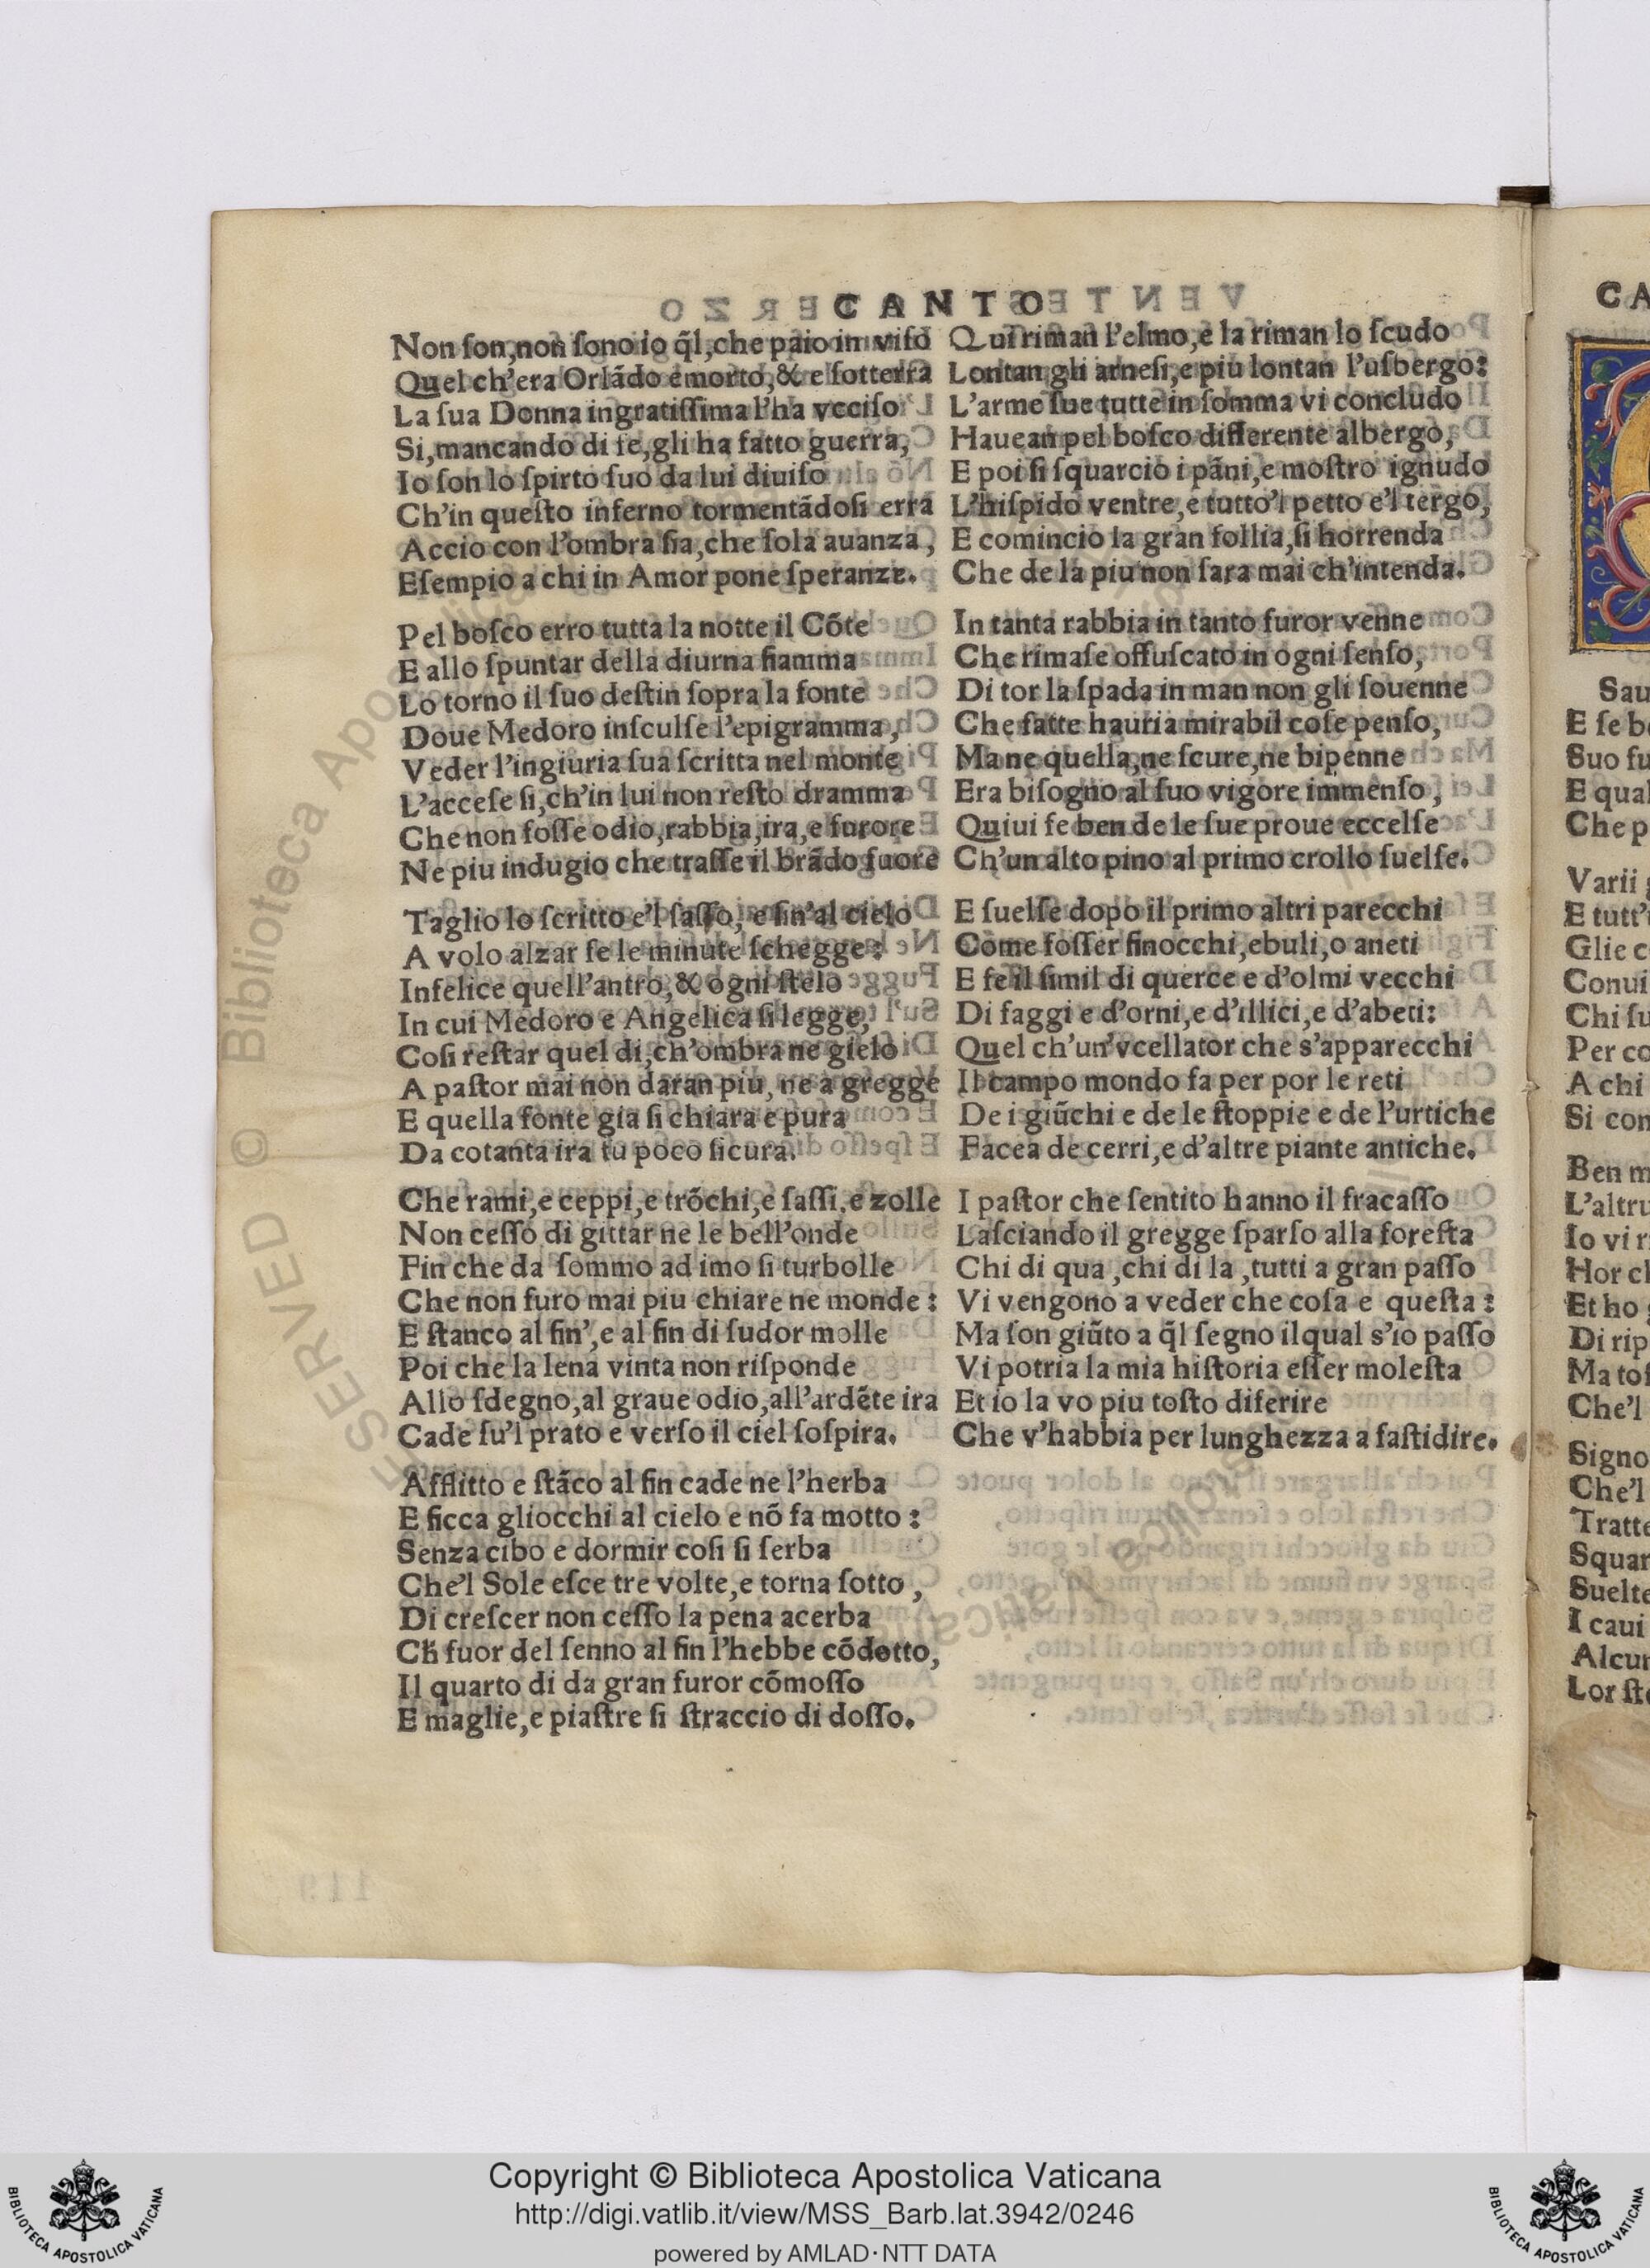 CANTO
Non ſon, non ſono io q̃l, che paio in viſo
Quel ch'era Orlãdo e morto, & e ſotterra
La ſua Donna ingratiſſima l'ha vcciſo
Si, mancando di fe, gli ha fatto guerra,
Io ſon lo ſpirto ſuo da lui diuiſo
Ch'in queſto inferno tormentãdoſi erra
Accio con l'ombra ſia, che ſola auanza,
Eſempio a chi in Amor pone ſperanza.
Pel boſco erro tutta la notte il Cõte
E allo ſpuntar della diurna fiamma
Lo torno il ſuo deſtin ſopra la fonte
Doue Medoro inſculſe l'epigramma,
Veder l'ingiuria ſua ſcritta nel monte
L'acceſe ſi, ch'in lui non reſto dramma
Che non foſſe odio, rabbia, ira, e furore
Ne piu indugio che traſſe il brãdo fuore
Taglio lo ſcritto e'l ſaſſo, e ſin'al cielo
A volo alzar fe le minute ſchegge:
Infelice quell'antro, & ogni ſtelo
In cui Medoro e Angelica ſi legge,
Coſi reſtar quel di, ch'ombra ne gielo
A paſtor mai non daran piu, ne a gregge
E quella fonte gia ſi chiara e pura
Da cotanta ira fu poco ſicura.
Che rami, e ceppi, e trõchi, e ſaſſi, e zolle
Non ceſſo di gittar ne le bell'onde
Fin che da ſommo ad imo ſi turbolle
Che non furo mai piu chiare ne monde:
E ſtanco al fin', e al fin di ſudor molle
Poi che la lena vinta non riſponde
Allo ſdegno, al graue odio, all'ardẽte ira
Cade ſu'l prato e verſo il ciel ſoſpira.
Afflitto e ſtãco al fin cade ne l'herba
E ficca gliocchi al cielo e nõ fa motto:
Senza cibo e dormir coſi ſi ſerba
Che'l Sole eſce tre volte, e torna ſotto,
Di creſcer non ceſſo la pena acerba
Ch̃ fuor del ſenno al fin l'hebbe cõdotto,
Il quarto di da gran furor cõmoſſo
E maglie, e piaſtre ſi ſtraccio di doſſo.
Qui riman l'elmo, e la riman lo ſcudo
Lontan gli arneſi, e piu lontan l'uſbergo:
L'arme ſue tutte in ſomma vi concludo
Hauean pel boſco differente albergo,
E poi ſi ſquarcio i pãni, e moſtro ignudo
L'hiſpido ventre, e tutto'l petto e'l tergo,
E comincio la gran follia, ſi horrenda
Che de la piu non ſara mai ch'intenda.
In tanta rabbia in tanto furor venne
Che rimaſe offuſcato in ogni ſenſo,
Di tor la ſpada in man non gli ſouenne
Che fatte hauria mirabil coſe penſo,
Ma ne quella, ne ſcure, ne bipenne
Era biſogno al ſuo vigore immenſo,
Quiui fe ben de le ſue proue eccelſe
Ch'un alto pino al primo crollo ſuelſe.
E ſuelſe dopo il primo altri parecchi
Come foſſer finocchi, ebuli, o aneti
E fe il ſimil di querce e d'olmi vecchi
Di faggi e d'orni, e d'illici, e d'abeti:
Quel ch'un'vcellator che s'apparecchi
Il campo mondo fa per por le reti
De i giũchi e de le ſtoppie e de l'urtiche
Facea de cerri, e d'altre piante antiche.
I paſtor che ſentito hanno il fracaſſo
Laſciando il gregge ſparſo alla foreſta
Chi di qua, chi di la, tutti a gran paſſo
Vi vengono a veder che coſa e queſta:
Ma ſon giũto a q̃l ſegno ilqual s'io paſſo
Vi potria la mia hiſtoria eſſer moleſta
Et io la vo piu toſto diferire
Che v'habbia per lunghezza a faſtidire.
CA
Sau
E ſe b
Suo fu
E qual
Che p
Varii
E tutt'
Glie c
Conui
Chi fu
Per co
A chi
Si con
Ben m
L'altru
Io vi r
Hor ch
Et ho
Di rip
Ma toſ
Che'l
Signo
Che'l
Tratte
Squar
Suelte
I caui
Alcun
Lor ſt
119
Biblioteca Apostolica Vaticana
Copyright © Biblioteca Apostolica Vaticana
http://digi.vatlib.it/view/MSS_Barb.lat.3942/0246
powered by AMLAD·NTT DATA
BIBLIOTECA APOSTOLICA VATICANA
BIBLIOTECA APOSTOLICA VATICANA